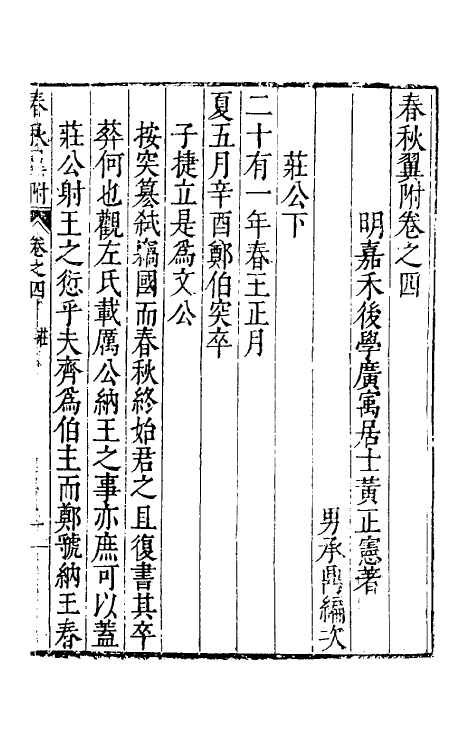 春秋翼附卷之四
明嘉禾後學廣寓居士黃正憲著
男承鼎編次
莊公下
二十有一年春王正月
夏五月辛酉鄭伯突卒
子捷立是為文公
按突篡弒竊國而春秋終始君之且復書其卒
葬何也觀左氏載厲公納王之事亦庶可以蓋
莊公射王之愆乎夫齊為伯主而鄭虢納王春
春秋翼附 卷之四 莊